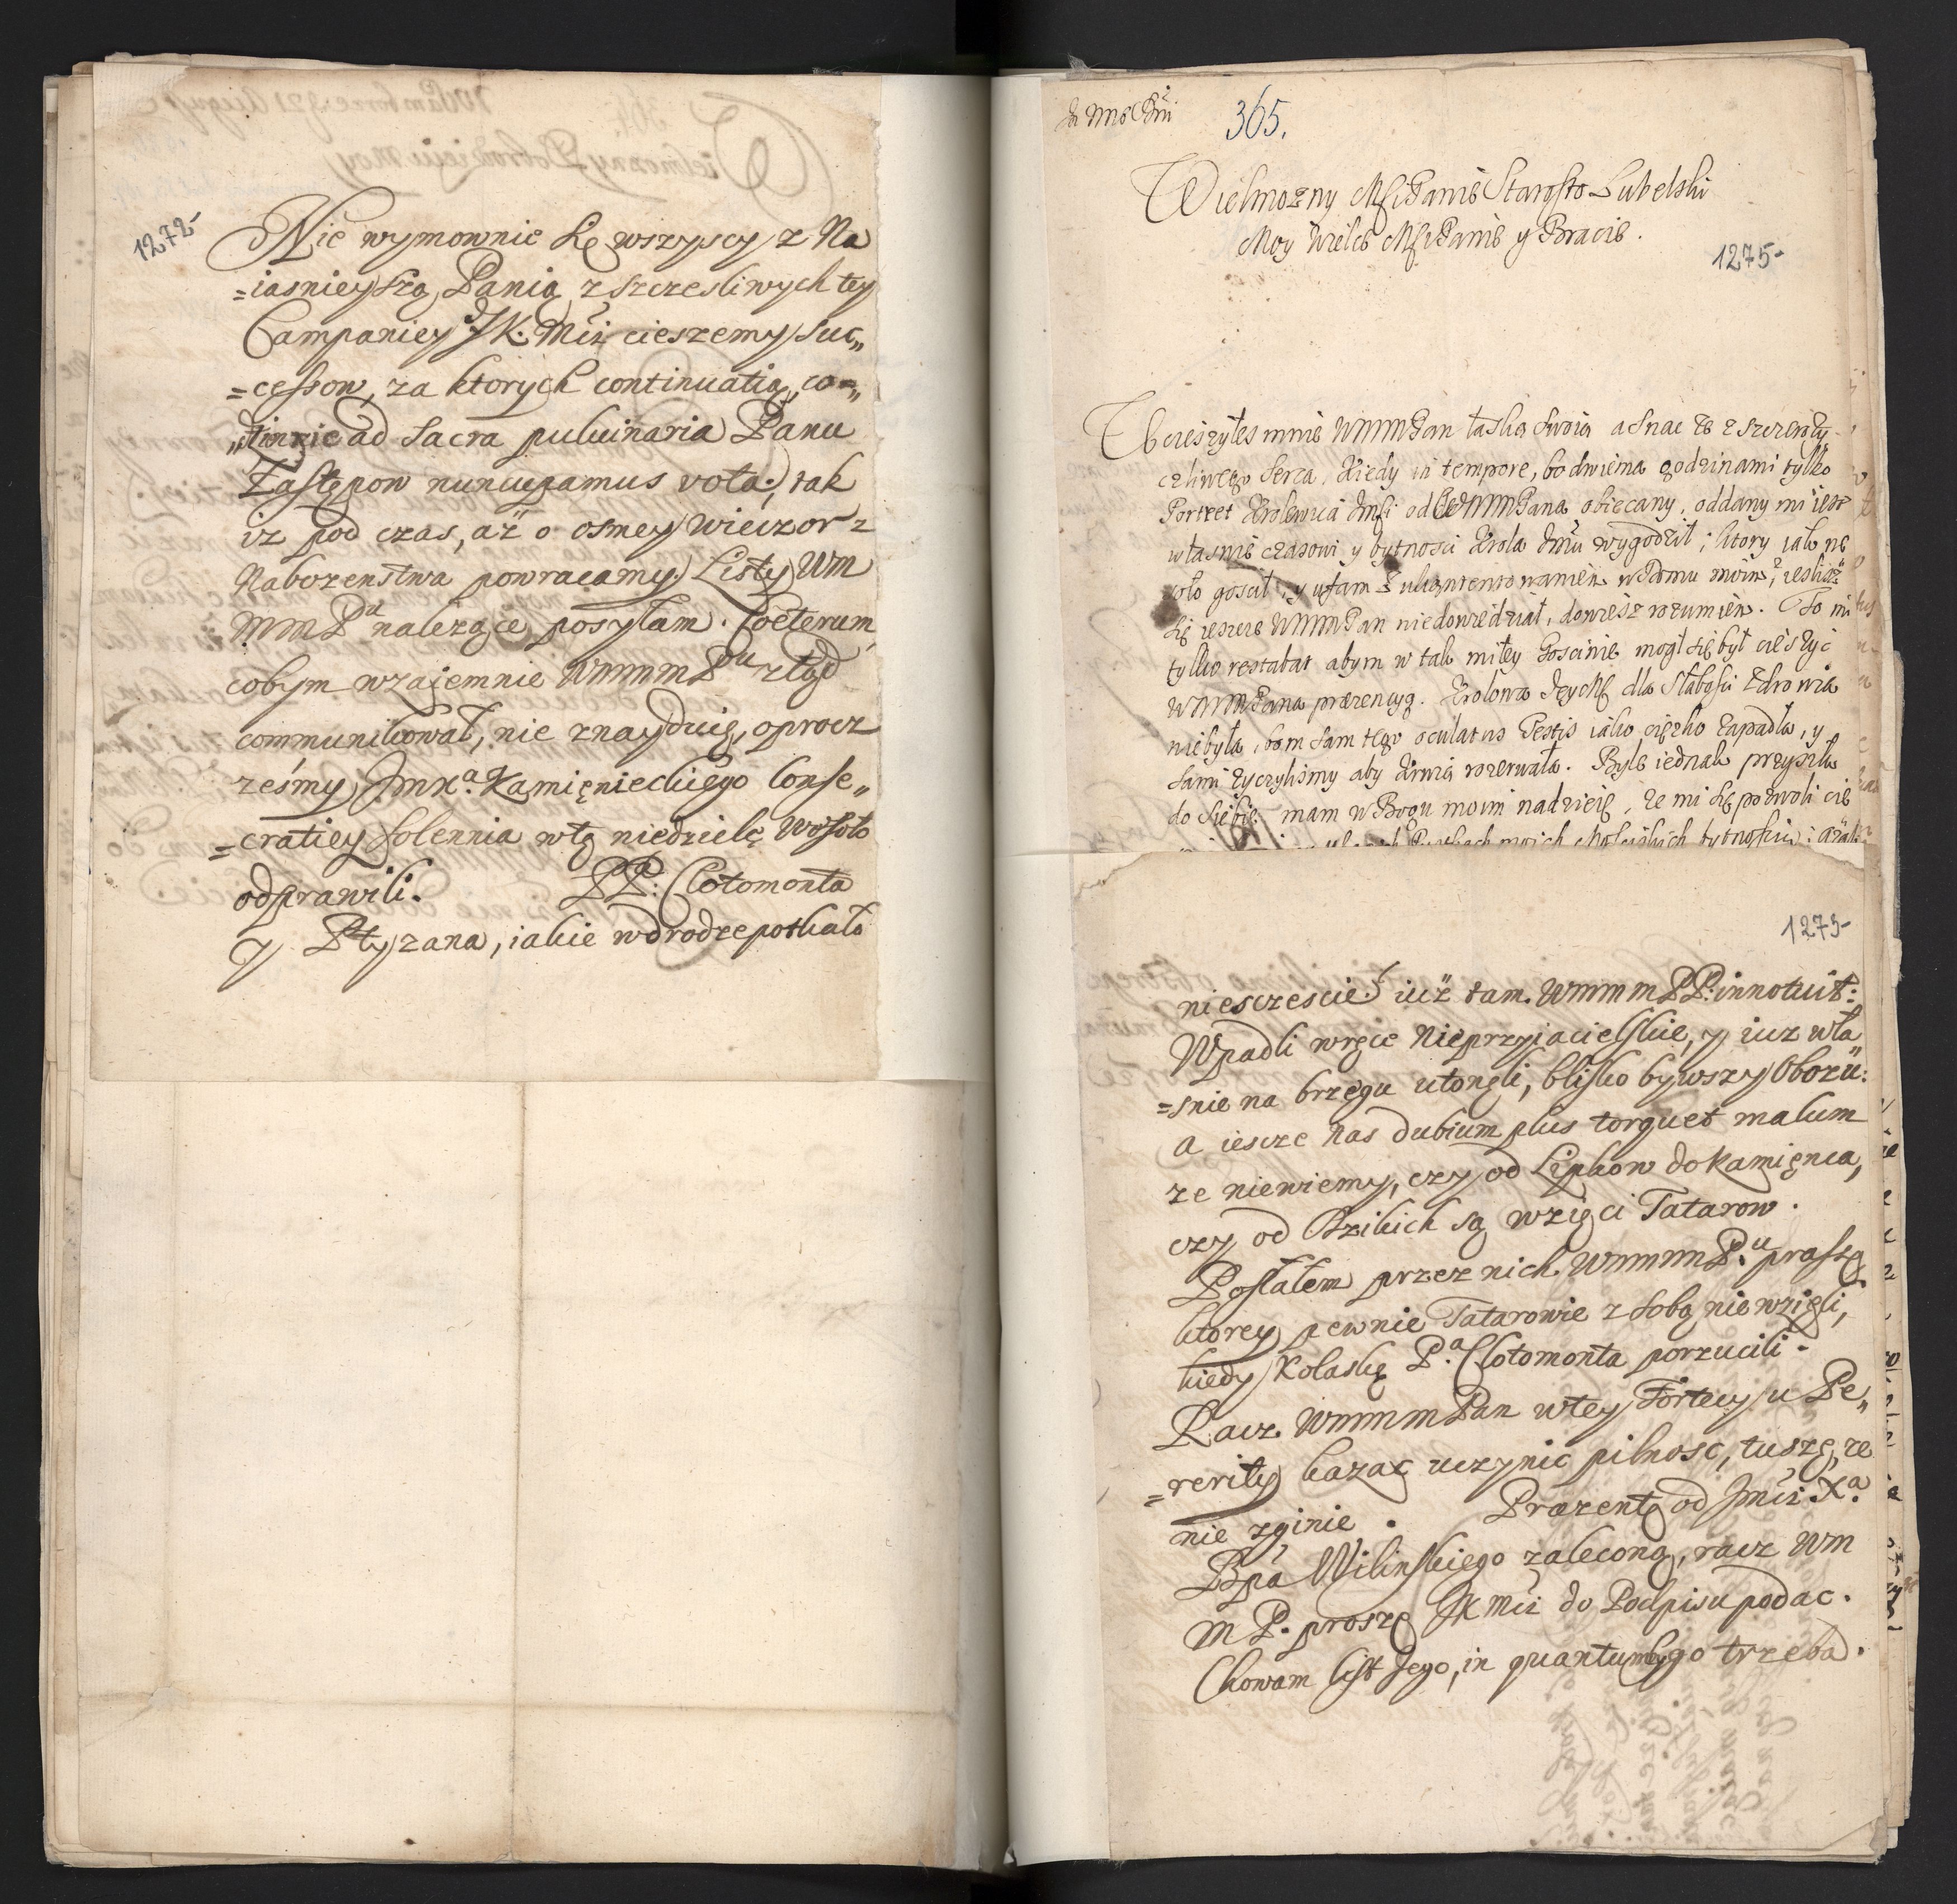 1272
Nie wymownie się wszyscy z Na
=iasnieyszą Panią z szczesliwych tey
Campaniey JK. Mći cieszemy suc„
=cessow, za ktorych continuatią, co=„
„dziennie ad Sacra pulvinaria Panu
Zastępow nuncupamus vota, tak
iz pod czas, aż o osmey wieczor z
Nabozenstwa powracamy. Listy Wm
MMPa nalezące posyłam. Coeterum
cobym wzajemnie WmmmPu ztąd
communikował, nie znayduię, oprocz
ześmy Jmxa. Kamięnieckiego Conse„
=cratiey solennia wtę niedzielę wesoło
odprawili. PP: Clotomonta
y Styzana, iakie wdrodze potkało
365.
Wielmozny MsciPanie Starosto Lubelski
Moy Wielce MsciPanie y Bracie.
1275
Ucieszyłes mnie WMMPan łaską swoią a snac ze z szczeroży-
czliwego serca, kiedy in tempore, bo dwiema godzinami tylko
Portret Krolewica Jmsci od WMMPana obiecany, oddany mi iest
własnie czasowi y bytnosci Krola Jmći wygodził; ktory iak we
soło goscił, y ufam z ukontentowaniem w Domu moim, iesliż
się ieszcze WMMPan niedowiedział, dowiesz rozumiem. To mi
tylko restabat abym w tak miłey Goscinie mogł się był cieszyć
WMMPana præzencyą. Krolowa JeyMć dla słabosci Zdrowia
niebyła, bom sam tego oculatus Testis iako cięzko zapadła, y
sami zyczylismy aby Krwią rozerwała. Byle iednak przyszła
do siebie mam w Bogu moim nadzieię, ze mi się pozwoli cie
1273
niesczescie iuż tam WmmmPP: innotuit:
Wpadli wręce Nieprzyiacielskie, y iuz wła
=snie na brzegu utonęli, blisko bywszy Obozu:
a iescze nas dubium plus torquet malum
ze niewiemy, czy od Lipkow do Kamięnca,
czy od Dzikich są wzięci Tatarow.
Posłałem przez nich WmmmP.u prasę
ktorey pewnie Tatarowie z sobą nie wzięli,
kiedy Kolaskę P.a Clotomonta porzucili.
Racz WmmmPan wtey Fortecy u Pe„
=reryty kazać uczynic pilnosc, tuszę, ze
nie zginie. Præzentę od Jmći Xa.
Bpa Wilinskiego zaleconą, racz Wm
m P. proszę JKMći do Podpisu podac.
Chowam list Jego, in quantumby go trzeba.